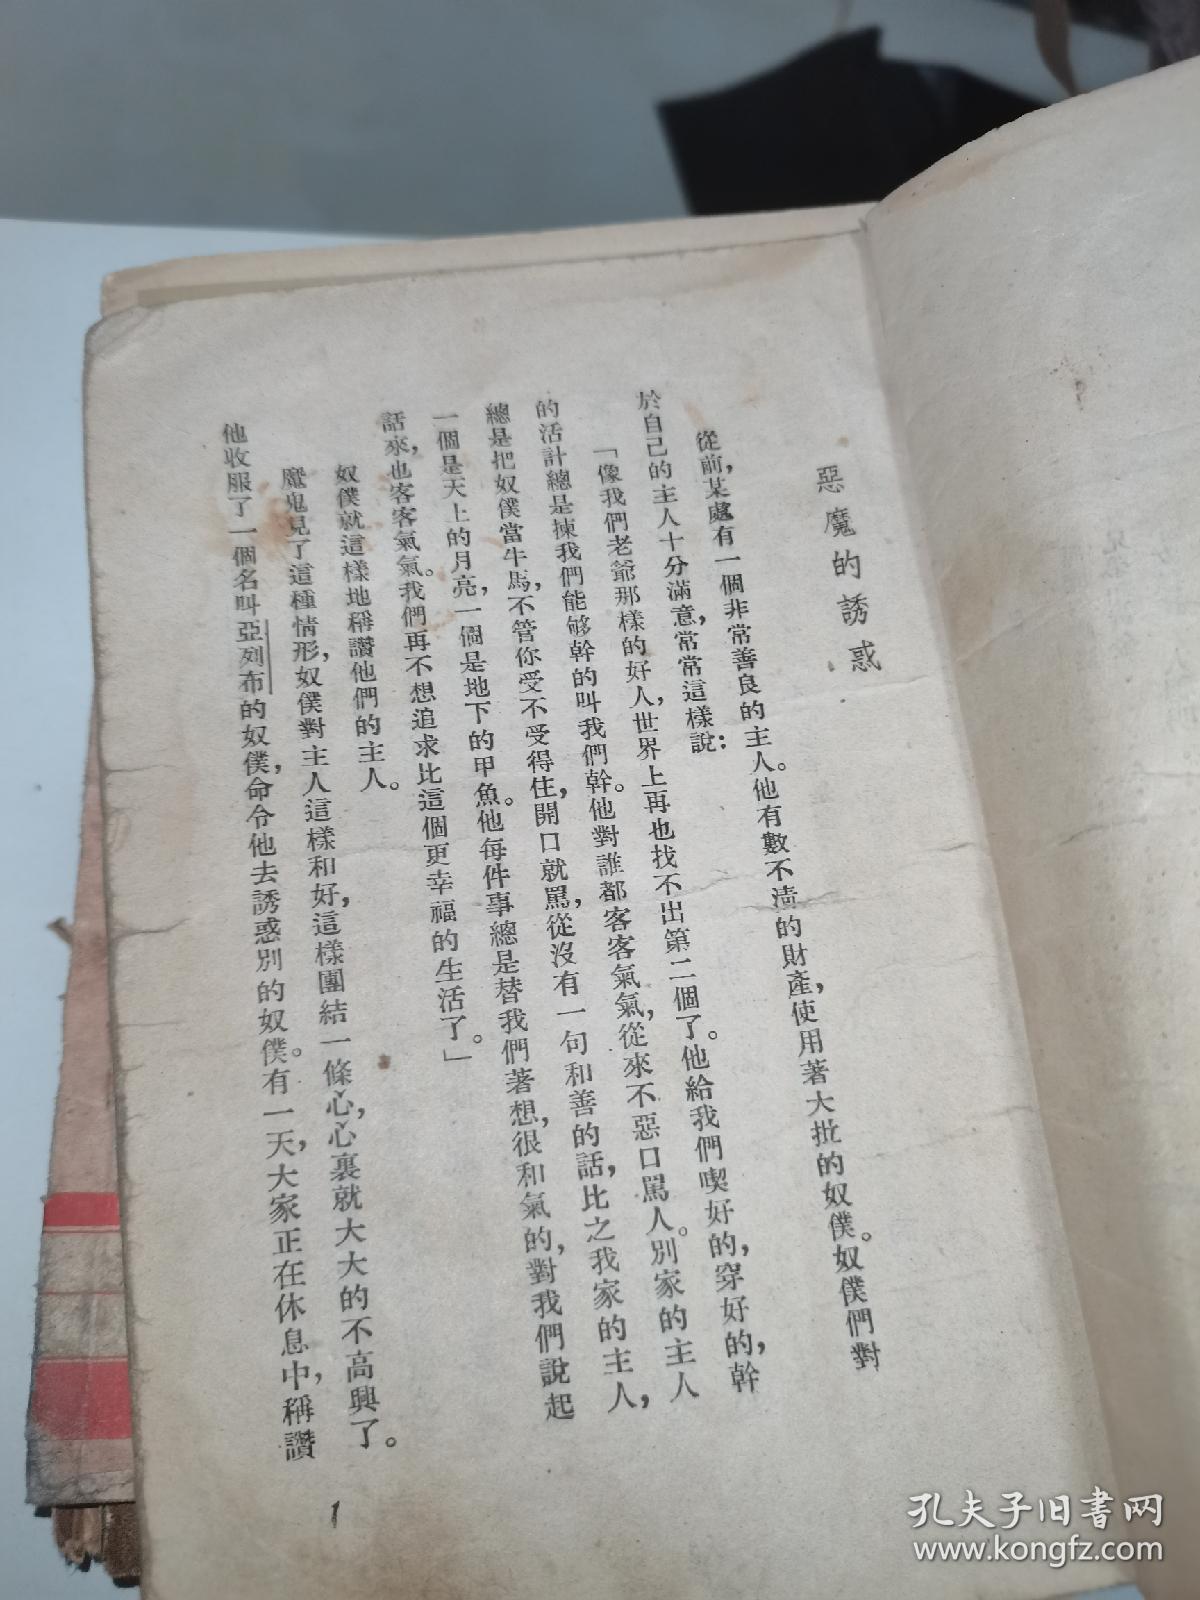 惡魔的誘惑
從前，某處有一個非常善良的主人。他有數不淸的財產，使用著大批的奴僕。奴僕們對
於自己的主人十分滿意，常常這樣說：
「像我們老爺那樣的好人，世界上再也找不出第二個了。他給我們喫好的，穿好的，幹
的活計總是揀我們能够幹的叫我們幹。他對誰都客客氣氣，從來不惡口駡人。別家的主人
總是把奴僕當牛馬，不管你受不受得住，開口就駡，從沒有一句和善的話，比之我家的主人，
一個是天上的月亮，一個是地下的甲魚。他每件事總是替我們著想，很和氣的，對我們說起
話來，也客客氣氣。我們再不想追求比這個更幸福的生活了。」
奴僕就這樣地稱讚他們的主人。
魔鬼見了這種情形，奴僕對主人這樣和好，這樣團結一條心，心裏就大大的不高興了。
他收服了一個名叫亞列布的奴僕，命令他去誘惑別的奴僕。有一天，大家正在休息中，稱讚
1
孔夫子旧书网
www.kongfz.com